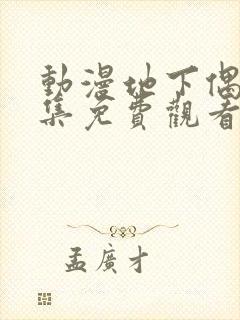 動漫地下偶
集免費觀看
孟廣才